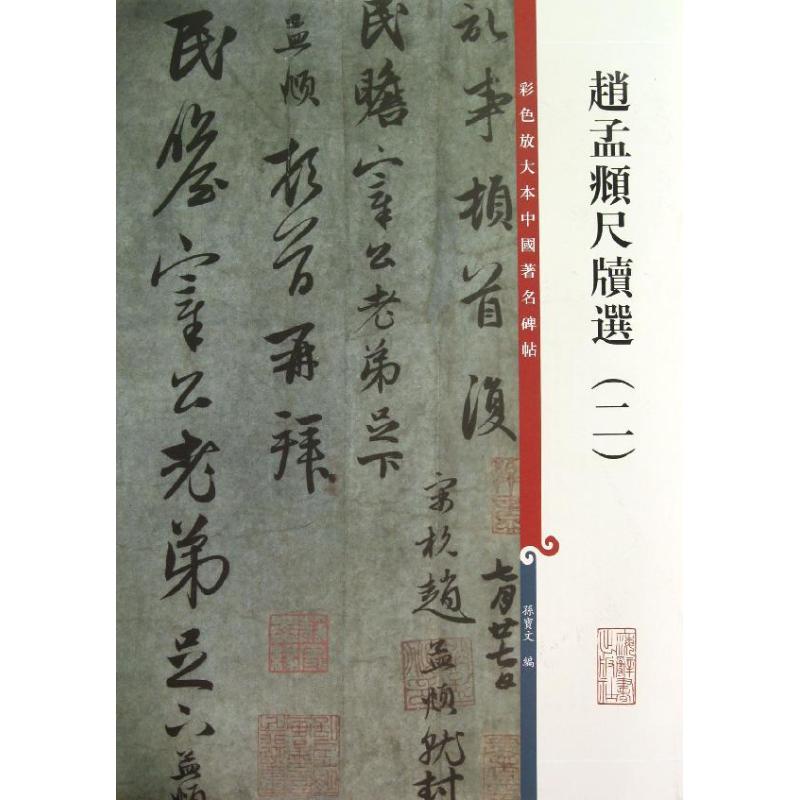 趙孟頫尺牘選(二)
彩色放大本中國著名碑帖
孫寶文 編
事頓首復
七月廿七日
杭趙孟頫封
民瞻宰公老弟足下
孟頫頓首再拜
民瞻宰公老弟足下孟頫